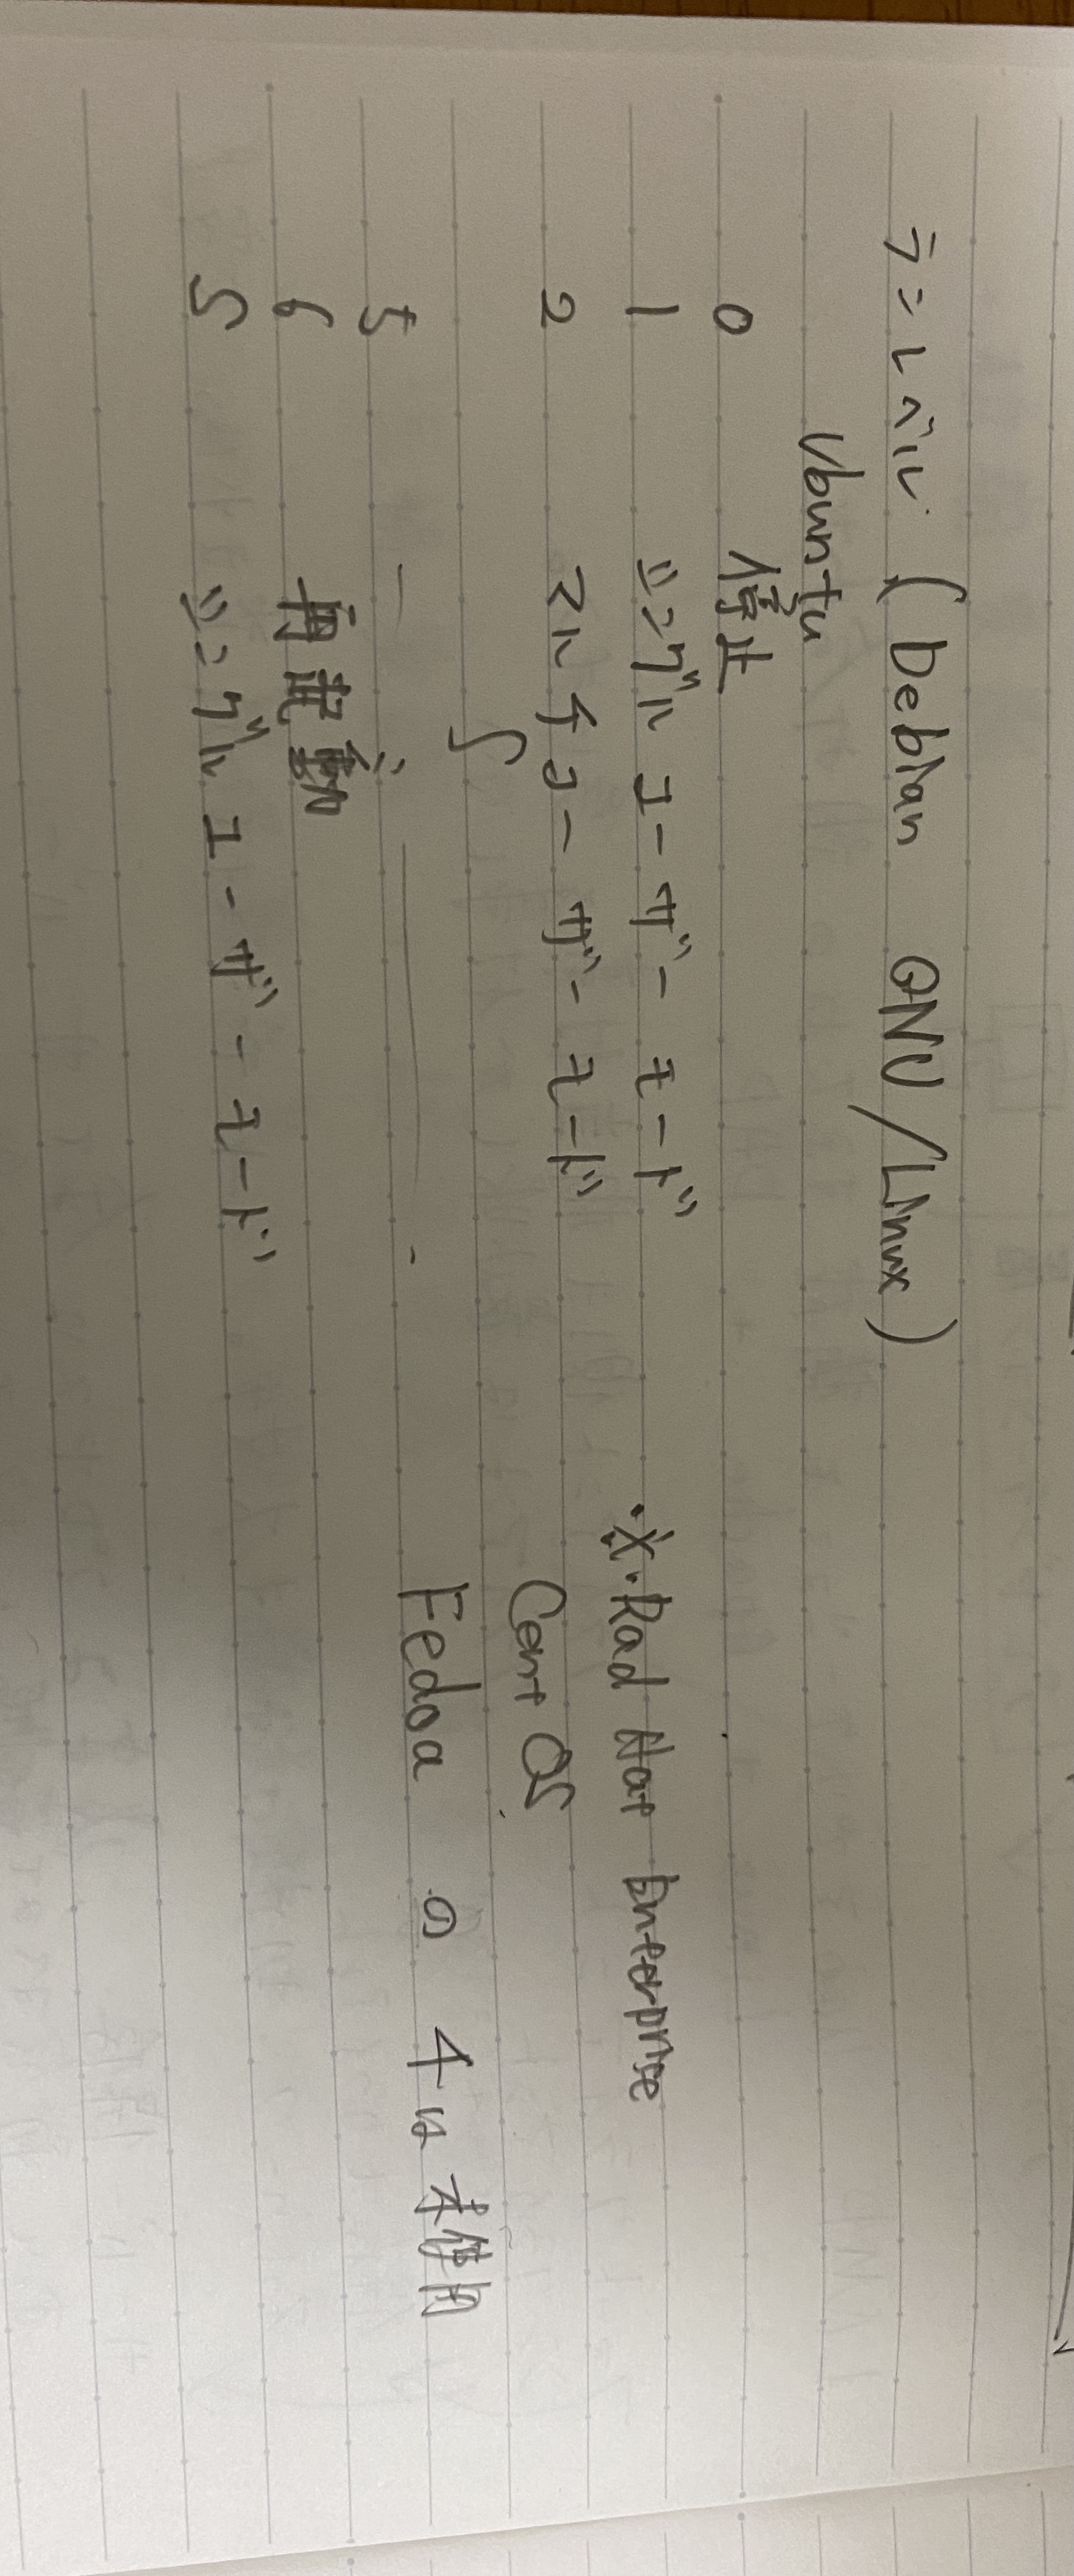 ランレベル (Debian GNU/Linux)
Ubuntu
0 停止
1 シングルユーザーモード
2 マルチユーザーモード
∫
5 〃
6 再起動
S シングルユーザーモード
※ Rad Hat Enterprise
Cent OS
Fedoa の 4は未使用